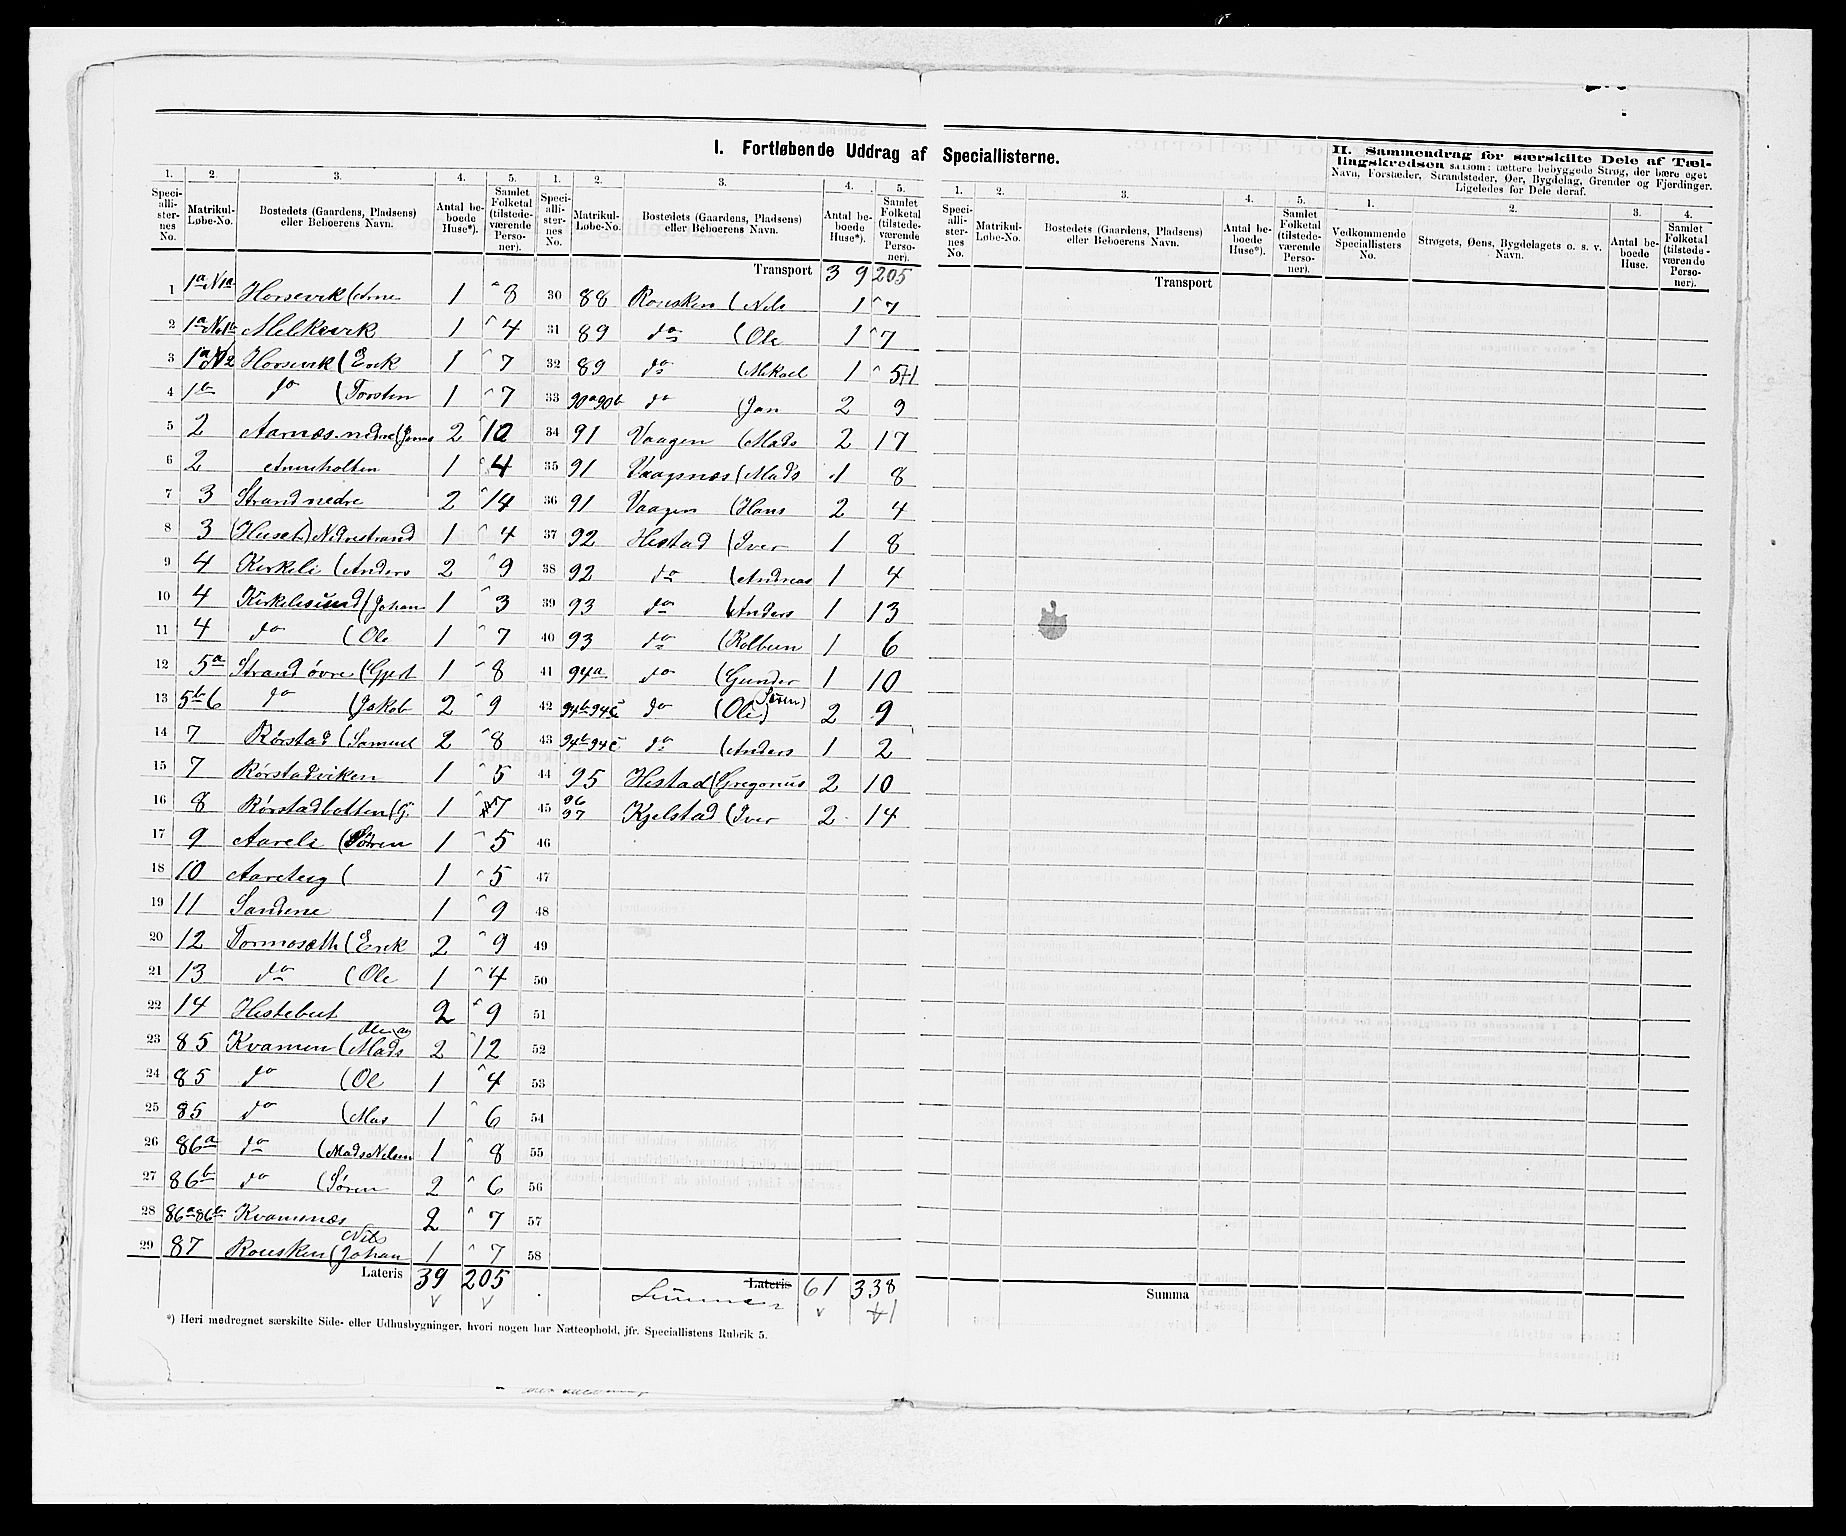 I. Fortløbende Uddrag af Speciallisterne.
II. Sammendrag for særskilte Dele af Tæl-
lingskredsen saasom: tættere bebyggede Strøg, der bære eget
Navn, Forstæder, Strandsteder, Øer, Bygdelag, Grender og Fjerdinger.
Ligeledes for Dele deraf.
1. 2. 3. 4. 5. 1. 2. 3. 4. 5. 1. 2. 3. 4. 5. 1. 2. 3. 4.
Speciallisternes No. Matrikul-Løbe-No. Bostedets (Gaardens, Pladsens) eller Beboerens Navn. Antal beboede Huse*). Samlet Folketal (tilstedeværende Personer).
Speciallisternes No. Matrikul-Løbe-No. Bostedets (Gaardens, Pladsens) eller Beboerens Navn. Antal beboede Huse*). Samlet Folketal (tilstedeværende Personer).
Speciallisternes No. Matrikul-Løbe-No. Bostedets (Gaardens, Pladsens) eller Beboerens Navn. Antal beboede Huse*). Samlet Folketal (tilstedeværende Personer).
Vedkommende Speciallisters No. Strøgets, Øens, Bygdelagets o. s. v. Navn. Antal beboede Huse. Samlet Folketal (tilstedeværende Personer).
1 1a N1a Horsevik (Arne 1 8
2 1a No1b Melkevik 1 4
3 1a N2 Horsevik (Erik 1 7
4 1b do (Torsten 1 7
5 2 Aarnæs nedre (Jonas 2 10
6 2 Anneholten 1 4
7 3 Strand nedre 2 14
8 3 (Huset) Nedrestrand 1 4
9 4 Kirkeli (Anders 2 9
10 4 Kirkelisund (Johan 1 3
11 4 do (Ole 1 7
12 5a Strand øvre (Gjert 1 8
13 5b 6 do (Jakob 2 9
14 7 Rørstad (Samuel 2 8
15 7 Rørstadviken 1 5
16 8 Rørstadbotten (G. 1 7
17 9 Aareli (Søren 1 5
18 10 Aareteig ( 1 5
19 11 Sandene 1 9
20 12 Tormosæth (Erik 2 9
21 13 do (Ole 1 4
22 14 Hestebut 2 9
23 85 Kvamen (Ole og Mads 2 12
24 85 do (Ol 1 4
25 85 do (Mas 1 6
26 86a do (Mads Nilsen 1 8
27 86b do (Søren 2 6
28 86a 86b Kvamsnæs 2 7
29 87 Rousken (Nils Johan 1 7
Lateris 39 205
Transport 39 205
30 88 Rousken (Nils 1 7
31 89 do (Ole 1 7
32 89 do (Mikael 1 5+1
33 90a 90b do (Jon 2 9
34 91 Vaagen (Mads 2 17
35 91 Vaagsnæs (Mads 1 8
36 91 Vaagen (Hans 2 4
37 92 Hestad (Iver 1 8
38 92 do (Andreas 1 4
39 93 do (Anders 1 13
40 93 do (Kolbein 1 6
41 94a do (Gunder 1 10
42 94b 94c do (Ole) 2 9
43 94b 94c do (Anders 1 2
44 95 Hestad (Gregorius 2 10
45 96 97 Kjelstad (Iver 2 14
46
47
48
49
50
51
52
53
54
55
56
57
58
Lateris Summa 61 338
+1
Transport
Summa
*) Heri medregnet særskilte Side- eller Udhusbygninger, hvori nogen har Natteophold, jfr. Speciallistens Rubrik 5.